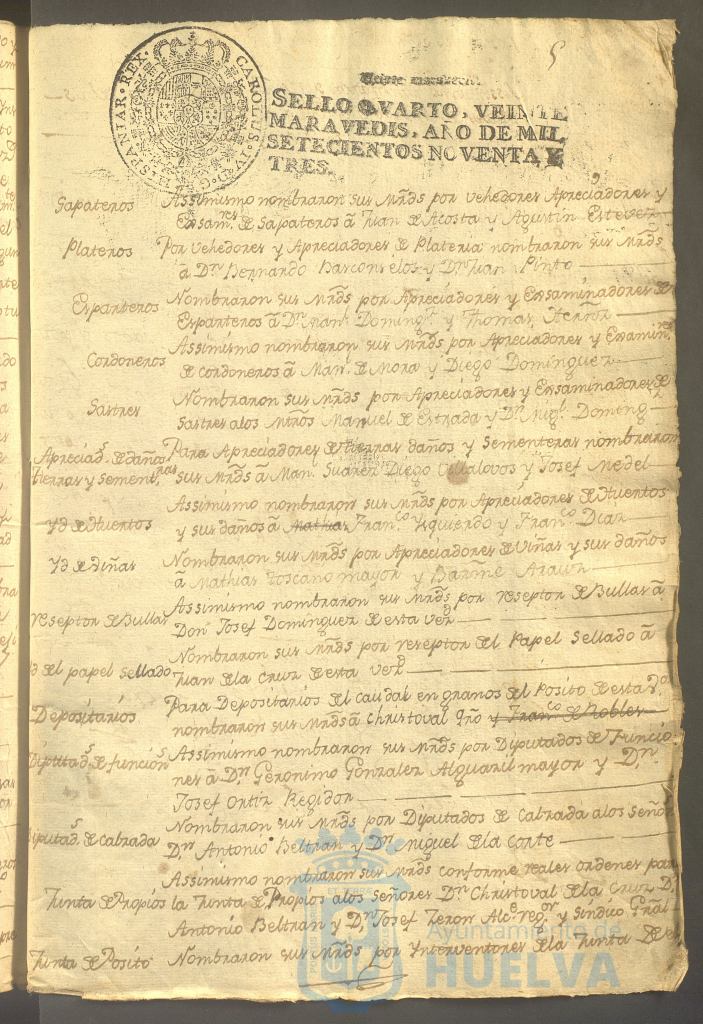 5
HISPANIAR. REX. CAROLUS. IV. D. G.
SELLO QVARTO, VEINTE
MARAVEDIS, AÑO DE MIL
SETECIENTOS NOVENTA Y
TRES.
Sapateros Assimismo nombraron sus Mrds por vehedores Apreciadores y
Exsam.res de Sapateros â Juan de Acosta y Agustin Estevez
Plateros Por vehedores y Apreciadores de Plateria nombraron sus Mrds
â Dn Bernardo Basconselos y Dn Juan Pinto
Esparteros Nombraron sus Mrds por Apreciadores y Exsaminadores de
Esparteros â Dn Man.l Doming.z y Thomas
Cordoneros Assimismo nombraron sus Mrds por Apreciadores y Examin.res
de cordoneros â Man.l de Mora y Diego Dominguez
Sastres Nombraron sus Mrds por Apreciadores y Exsaminadores de
Sastres alos Mtros Manuel de Estrada y Dn Mig.l Doming.z
Apreciad.s de daños Para Apreciadores de tierras daños y Sementeras nombraron
tierras y sement.ras sus Mrds â Man.l Suarez Diego Villalovos y Josef Medel
Assimismo nombraron sus Mrds por Apreciadores de Huertos
Yd de Huertos y sus daños â Mathias Fran.co Ysquierdo y Fran.co Diaz
Yd de Viñas Nombraron sus Mrds por Apreciadores de Viñas y sus daños
â Mathias Toscano mayor y Barme
Assimismo nombraron sus Mrds por reseptor de Bullas â
reseptor de Bullas Don Josef Dominguez de esta vez.d
Nombraron sus Mrds por reseptor del Papel Sellado â
d del papel sellado Juan de la Cruz de esta vez.d
Para Depositarios del caudal en granos del Posito de esta V.a
Depositarios nombraron sus Mrds â Christoval Qro y Fran.co de Robles
Diputad.s de función.s Assimismo nombraron sus Mrds por Diputados de Funcio
nes â Dn Geronimo Gonzalez Alguazil mayor y Dn
Josef Ortiz Regidor
Nombraron sus Mrds por Diputados de Calzada alos Señor.s
Diputad.s de calzada Dn Antonio Beltran y Dn Miguel de la Corte
Assimismo nombraron sus Mrds conforme reales ordenes para
Junta de Propios la Junta de Propios alos Señores Dn Christoval de la Cruz D.n
Antonio Beltran y Dn Josef Zeron Alc.e reg.or y Sindico Gral
Junta de Posito Nombraron sus Mrds por Ynterventores de la Junta de
Ayuntamiento de
HUELVA